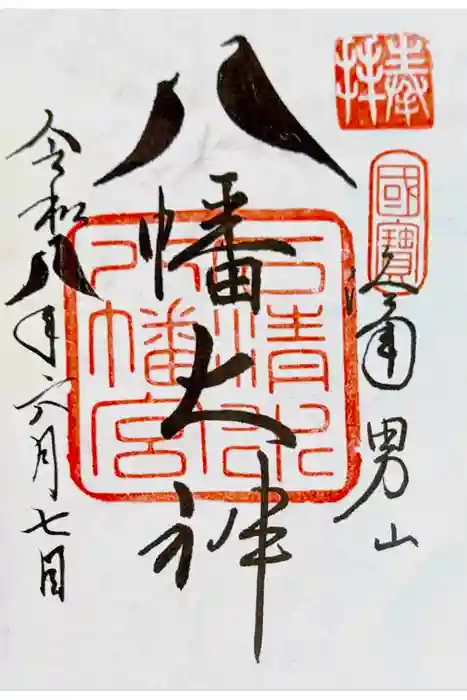 奉拝
國寶
洛南 男山
八幡大神
石清水
八幡宮
令和八年六月七日